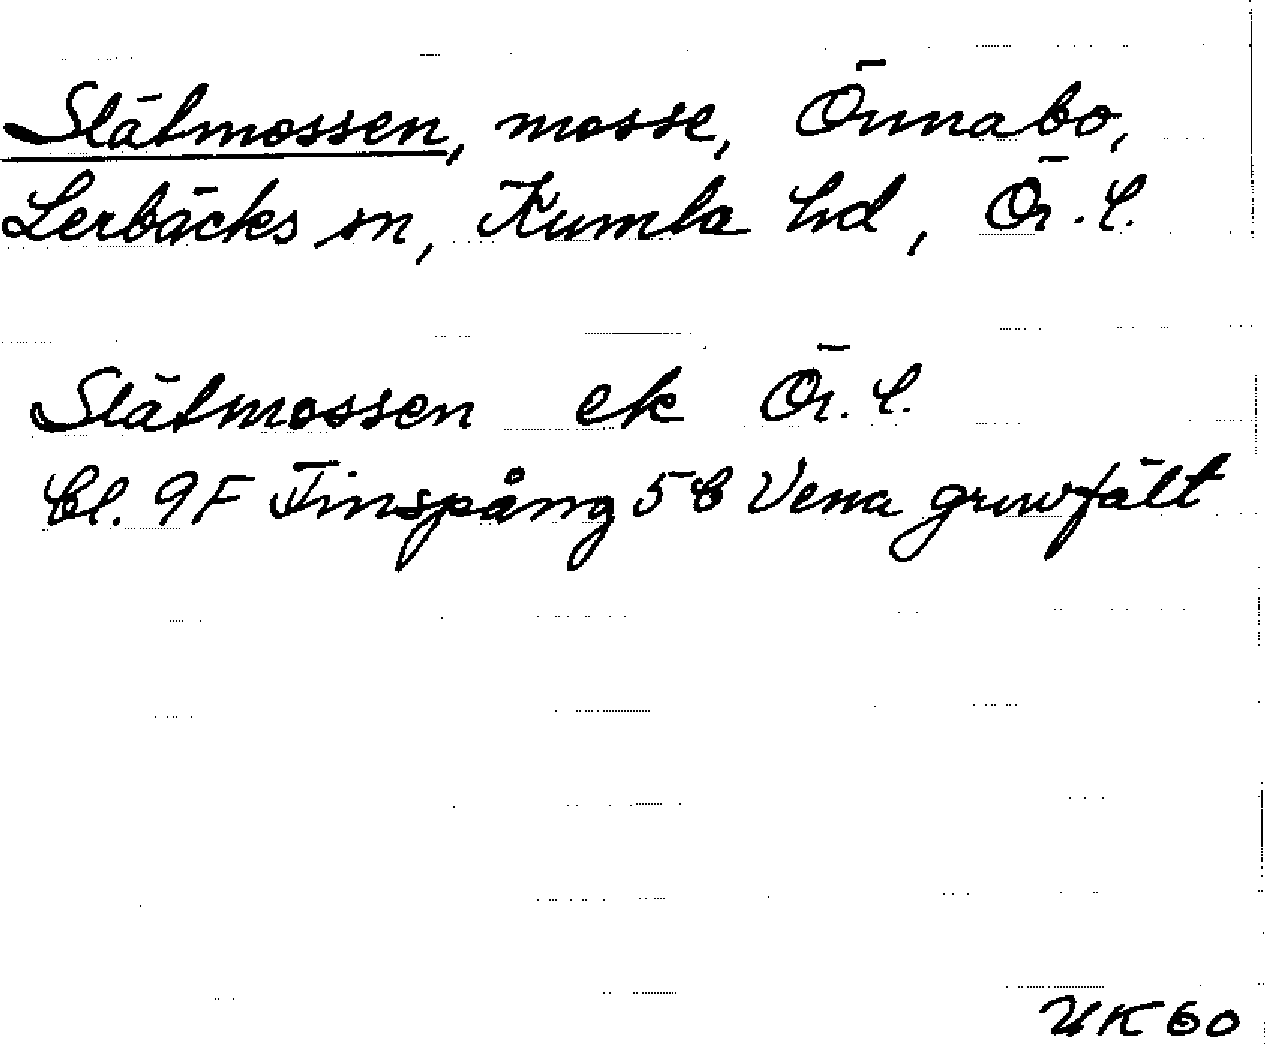 Slätmossen, mosse, Önnabo,
Lerbäcks sn, Kumla hd, Ör. l.
Slätmossen ek Ör. l.
bl. 9F Finspång 5 b Vena gruvfält
UK 60